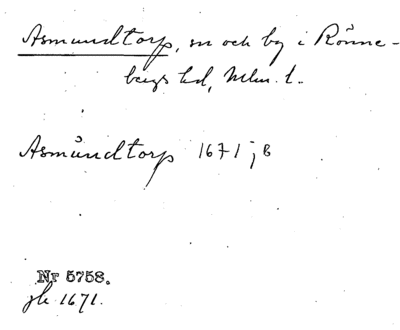 Asmundtorp, sn och by i Rönne-
bergs hd, Mlm. l.
Asmundtorp 1671 ; B
Nr 5758.
jb. 1671.